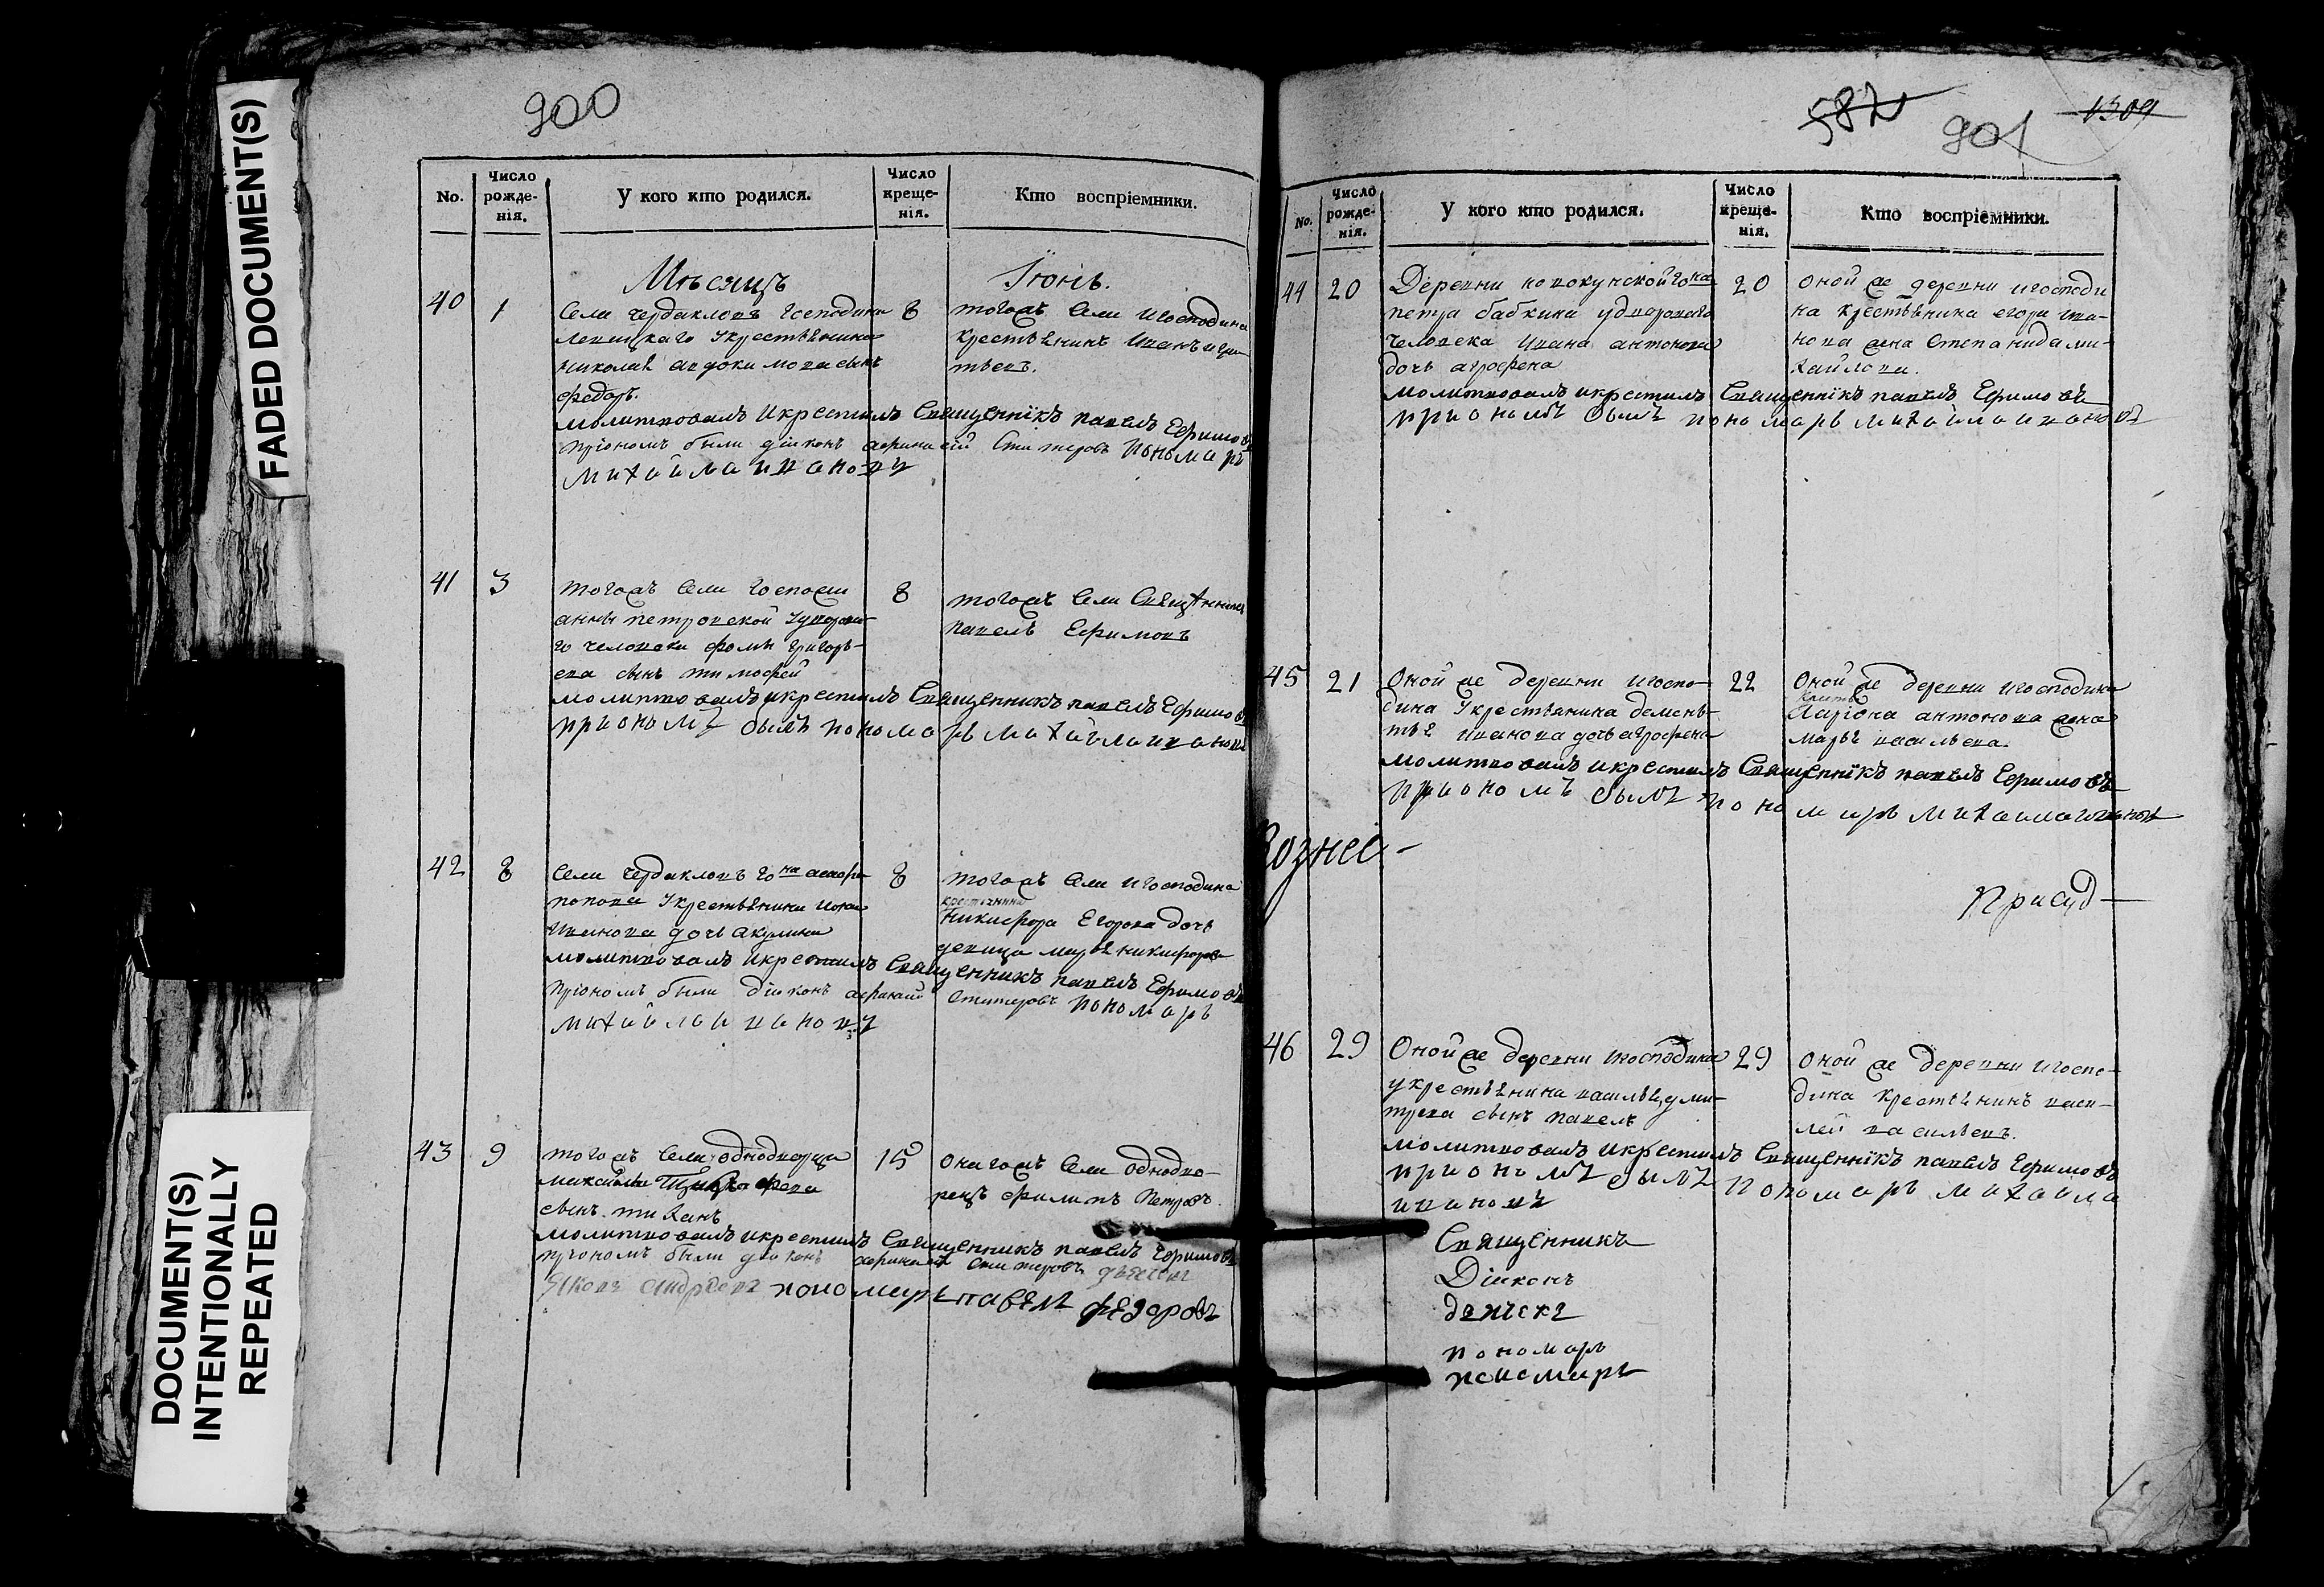 FADED DOCUMENT(S)
DOCUMENT(S)
INTENTIONALLY
REPEATED
900
No.
Число
рожде-
нія.
У кого кто родился.
Число
креще-
нія.
Кто воспріемники.
Мѣсяцъ
Іюнь.
40
1
Села Чердакловъ Господина
крестьянина
николая авдокимова сынъ
федоръ.
8
тогожъ села игосподина
крестьянинъ Иванъ
молитвовалъ икрестилъ Священнікъ павелъ Ефимовъ
пріономъ были діаконъ Стихаревъ Пономарь
михаила ивановъ
41
3
тогожъ села госпожи
анны петровской удворова-
го человека фомы григорь-
ева сынъ тимофей
8
тогожъ села Священникъ
павелъ Ефимовъ
молитвовалъ икрестилъ Священникъ павелъ Ефимовъ
приономъ былъ пономарь михайла ивановъ
42
8
села Чердакловъ гона
попова Укрестьянина
иванова дочь акулина
8
тогожъ села игосподина
крестьянина
Никифора Егорова дочь
девица марья никифорова
молитвовалъ икрестилъ Священникъ павелъ Ефимовъ
пріономъ были діаконъ Пономарь
михайла ивановъ
43
9
тогожъ села однодворца
максима
сынъ тиханъ
15
онагожъ села однодво-
рецъ филипъ Петровъ.
молитвовалъ икрестилъ Священникъ павелъ Ефимовъ
пріономъ были діаконъ дьячекъ
Яковъ андреевъ пономарь павелъ федоровъ
582
901
1309
No.
Число
рожде-
нія.
У кого кто родился.
Число
креще-
нія.
Кто воспріемники.
44
20
Деревни гона
петра бабкина удвороваго
человека ивана антонова
дочь агрофена
20
оной же деревни игосподи
на крестьянина егора ива-
нова жена Степанида ми-
хайлова.
молитвовалъ икрестилъ Священнікъ павелъ Ефимовъ
приономъ былъ пономарь михайла ивановъ
45
21
Оной же деревни игоспо-
дина Укрестьянина демень-
тья иванова дочь агрофена
22
Оной же деревни игосподина
Ларіона антонова жена
марья васильева.
молитвовалъ икрестилъ Священнікъ павелъ Ефимовъ
приономъ былъ пономарь михаила ивановъ
присуд-
46
29
Оной же деревни игосподина
укрестьянина василья дми-
трева сынъ павелъ
29
оной же деревни игоспо-
дина крестьянинъ васи-
лей васильевъ.
молитвовалъ икрестилъ Священнікъ павелъ Ефимовъ
приономъ былъ пономарь михаила
ивановъ
Священникъ
Діаконъ
дячекъ
пономарь
пономарь